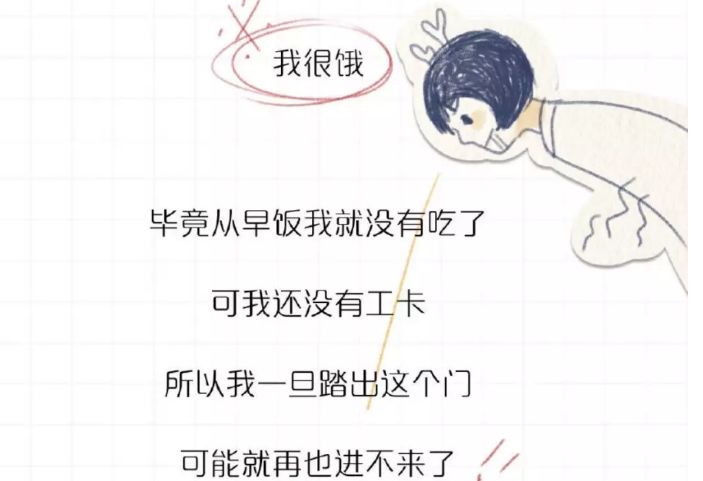 我很饿
毕竟从早饭我就没有吃了
可我还没有工卡
所以我一旦踏出这个门
可能就再也进不来了